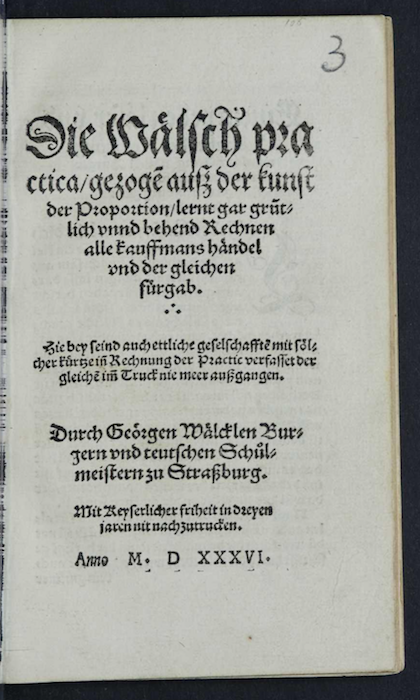 3
Die Wålsch pra
ctica/gezogē ausz der kunst
der Proportion/lernt gar grūt⸗
lich vnnd behend Rechnen
alle kauffmans håndel
vnd der gleichen
fürgab.
Hie bey seind auch ettliche geselschafftē mit sől⸗
cher kürtze in̄ Rechnung der Practic verfasset der
gleichē im̄ Truck nie meer außgangen.
Durch Geőrgen Wålcklen Bur⸗
gern vnd teutschen Schůl⸗
meistern zu Straßburg.
Mit Keyserlicher friheit in dreyen
jaren nit nachzutrucken.
Anno M. D XXXVI.